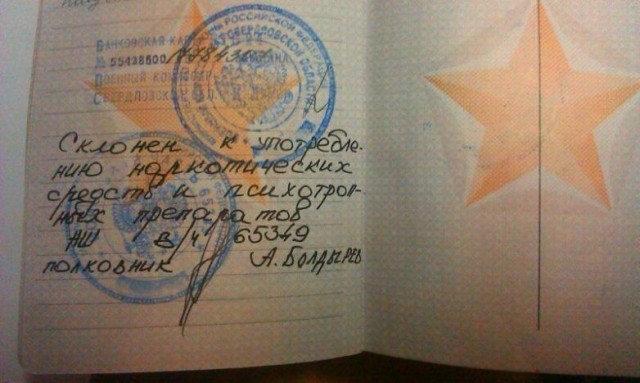 БАНКОВСКАЯ КА
№ 55438600/
ВОЕННЫЙ КОМИССАР
СВЕРДЛОВСКОЙ О
РОССИЙСКОЙ ФЕДЕРАЦИИ
СВЕРДЛОВСКОЙ ОБЛАСТИ
Склонен к употребле-
нию наркотических
средств и психотроп-
ных препаратов
НШ в/ч 65349
полковник А.Болдырев